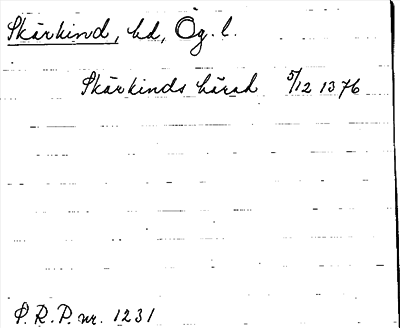 Skärkind, hd, Ög. l.
Skärkinds härad 5/12 1376
P. R. P. nr. 1231